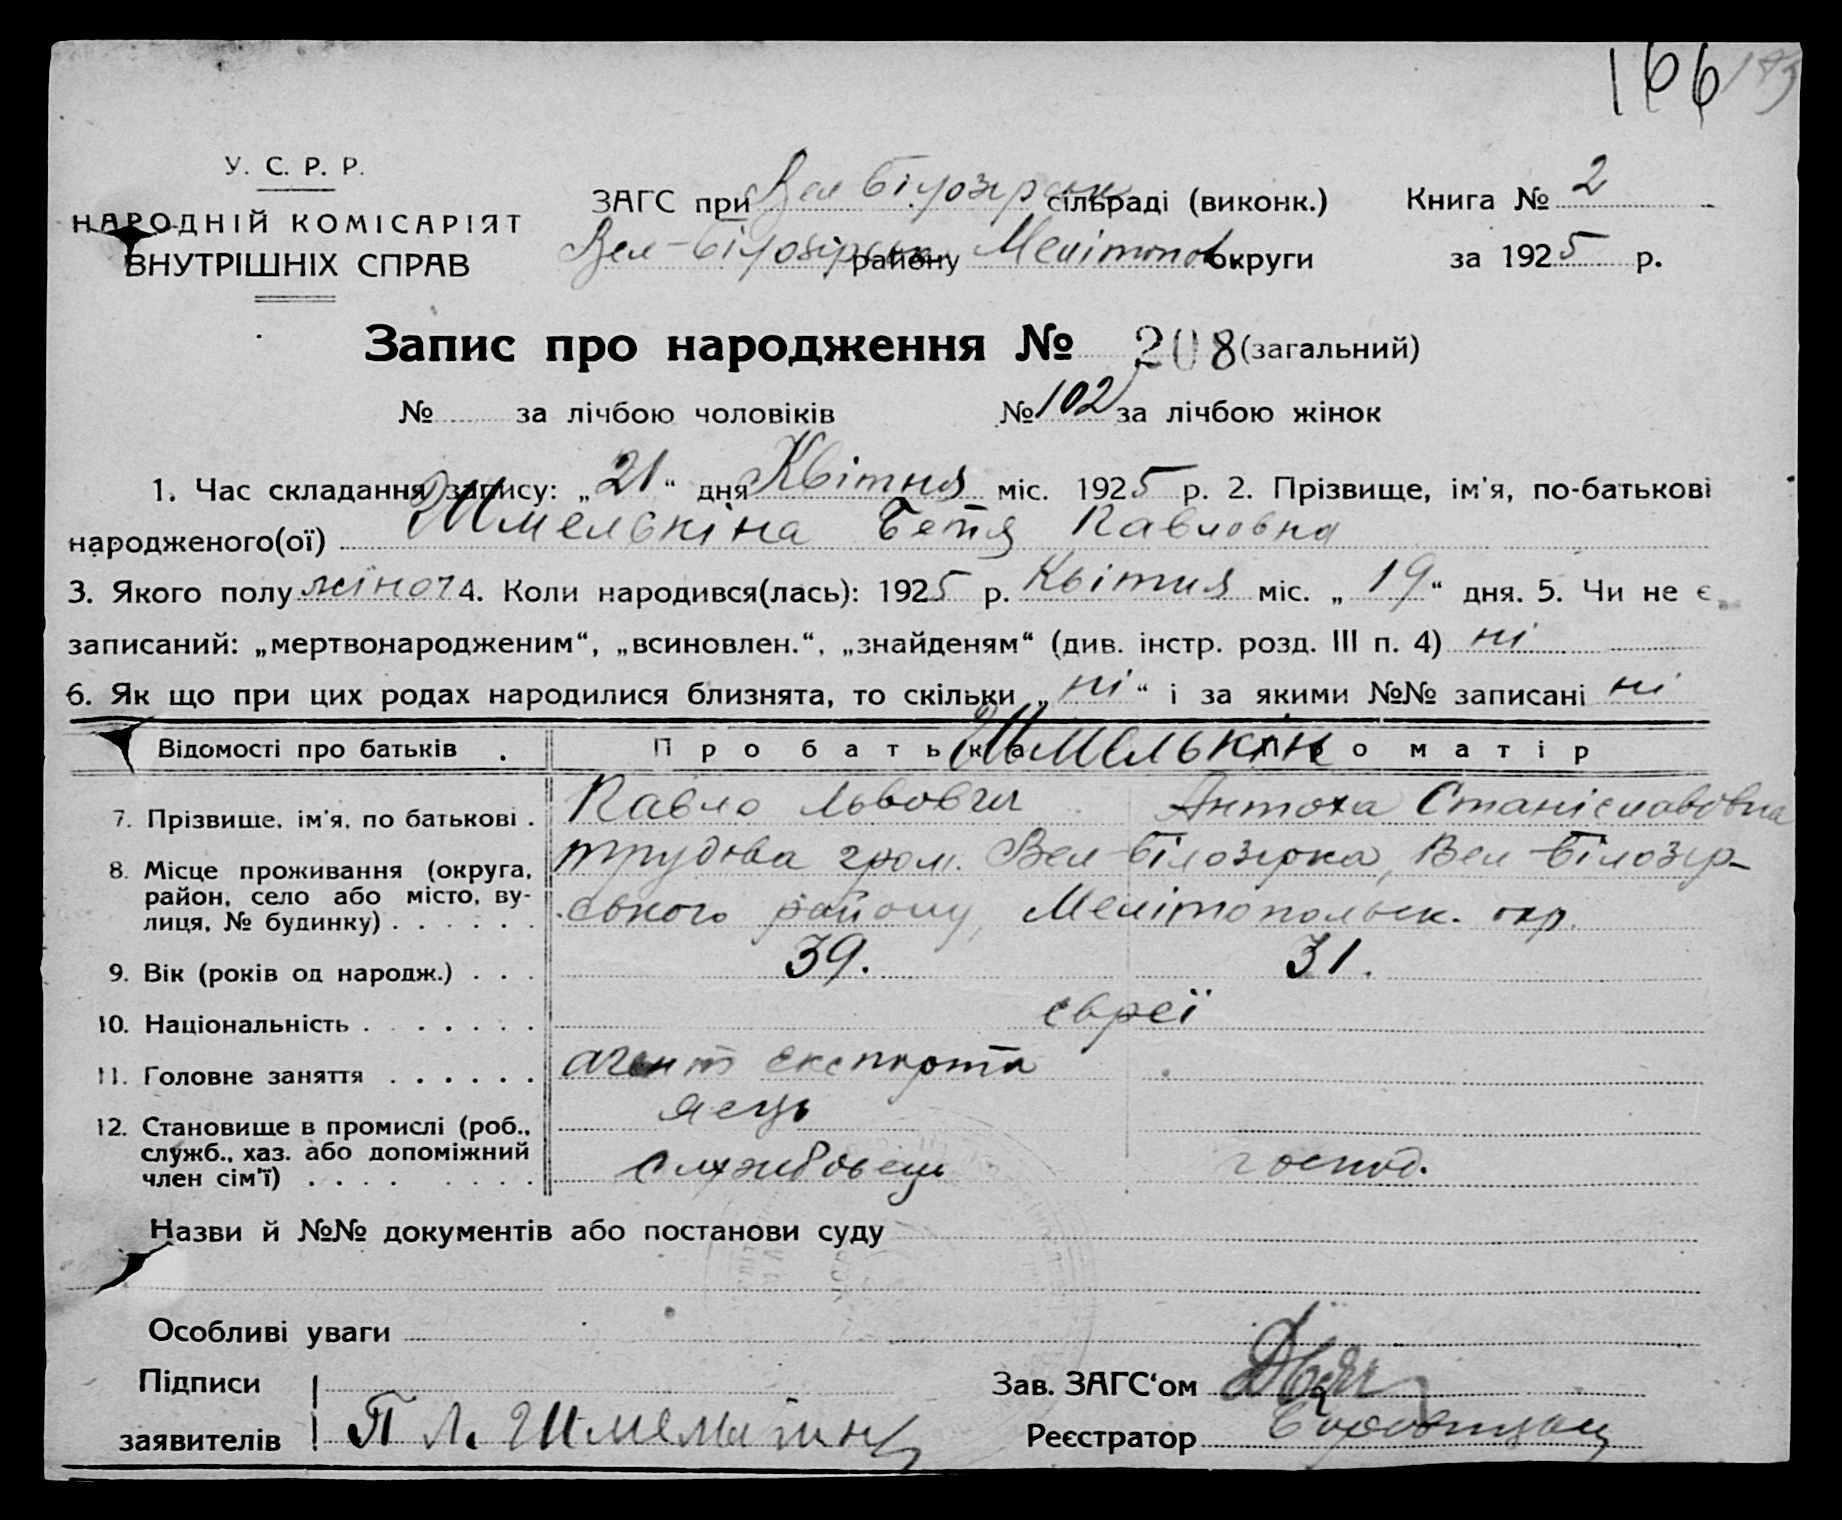 166 173
У. С. Р. Р.
НАРОДНІЙ КОМІСАРІЯТ
ВНУТРІШНІХ СПРАВ
ЗАГС при Вел Білозірськ сільраді (виконк.) Книга № 2
Вел-Білозірськ району Мелітопов. округи за 1925 р.
Запис про народження № 208 (загальний)
№ за лічбою чоловіків № 102 за лічбою жінок
1. Час складання запису: „21“ дня Квітня міс. 1925 р. 2. Прізвище, ім'я, по-батькові
народженого(ої) Шмелькіна Бетя Павловна
3. Якого полу жіноч 4. Коли народився(лась): 1925 р. Квітня міс. „19“ дня. 5. Чи не є
записаний: „мертвонародженим“, „всиновлен.“, „знайденям“ (див. інстр. розд. III п. 4) ні
6. Як що при цих родах народилися близнята, то скільки „ні“ і за якими №№ записані ні
Відомості про батьків . Про батька Про матір
Шмелькін
7. Прізвище, ім'я, по батькові . Павло Львович Антоха Станіславовна
8. Місце проживання (округа, район, село або місто, вулиця, № будинку) . . . . . .
трудова гром. Вел-Білозірка, Вел-Білозір-
ського району, Мелітопольск. окр.
9. Вік (років од народж.) . . . 39. 31.
10. Національність . . . . . . . євреї
11. Головне заняття . . . . . . агент експорта
яєць
12. Становище в промислі (роб., служб., хаз. або допоміжний член сім'ї) . . . . . . . .
службовець господ.
Назви й №№ документів або постанови суду
Особливі уваги
Підписи
заявителів П Л. Шмелькин
Зав. ЗАГС‘ом
Реєстратор